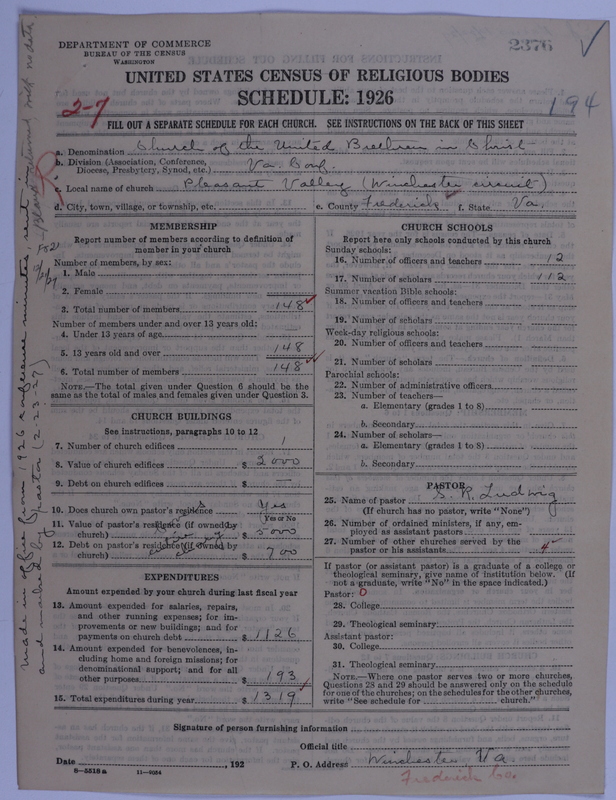 DEPARTMENT OF COMMERCE
BUREAU OF THE CENSUS
WASHINGTON
2376
UNITED STATES CENSUS OF RELIGIOUS BODIES
SCHEDULE: 1926
2-7
194
FILL OUT A SEPARATE SCHEDULE FOR EACH CHURCH. SEE INSTRUCTIONS ON THE BACK OF THIS SHEET
a. Denomination Church of the United Brethren in Christ
b. Division (Association, Conference, Diocese, Presbytery, Synod, etc.) Va. Conf.
c. Local name of church Pleasant Valley (Winchester circuit)
d. City, town, village, or township, etc. e. County Frederick f. State Va.
MEMBERSHIP
Report number of members according to definition of member in your church
Number of members, by sex:
1. Male
2. Female
3. Total number of members 148
Number of members under and over 13 years old:
4. Under 13 years of age —
5. 13 years old and over 148
6. Total number of members 148
NOTE.—The total given under Question 6 should be the same as the total of males and females given under Question 3.
CHURCH BUILDINGS
See instructions, paragraphs 10 to 12
7. Number of church edifices 1
8. Value of church edifices $ 2000
9. Debt on church edifices $ —
10. Does church own pastor's residence Yes
(Yes or No)
11. Value of pastor's residence (if owned by church) $ 5000
12. Debt on pastor's residence (if owned by church) $ 700
EXPENDITURES
Amount expended by your church during last fiscal year
13. Amount expended for salaries, repairs, and other running expenses; for improvements or new buildings; and for payments on church debt $ 1126
14. Amount expended for benevolences, including home and foreign missions; for denominational support; and for all other purposes $ 193
15. Total expenditures during year $ 1319
CHURCH SCHOOLS
Report here only schools conducted by this church
Sunday schools:
16. Number of officers and teachers 12
17. Number of scholars 112
Summer vacation Bible schools:
18. Number of officers and teachers
19. Number of scholars
Week-day religious schools:
20. Number of officers and teachers
21. Number of scholars
Parochial schools:
22. Number of administrative officers
23. Number of teachers—
a. Elementary (grades 1 to 8)
b. Secondary
24. Number of scholars—
a. Elementary (grades 1 to 8)
b. Secondary
PASTOR
25. Name of pastor S. R. Ludwig
(If church has no pastor, write "None")
26. Number of ordained ministers, if any, employed as assistant pastors
27. Number of other churches served by the pastor or his assistants 4
If pastor (or assistant pastor) is a graduate of a college or theological seminary, give name of institution below. (If not a graduate, write "No" in the space indicated.)
Pastor: 0
28. College
29. Theological seminary
Assistant pastor:
30. College
31. Theological seminary
NOTE.—Where one pastor serves two or more churches, Questions 28 and 29 should be answered only on the schedule for one of the churches; on the schedules for the other churches, write "See schedule for church."
Signature of person furnishing information
Official title
Date , 192 P. O. Address Winchester Va.
8-5518a 11-8054
Frederick Co.
Made in office from 1926 conference minutes sent in
and mailed by pastor (2-23-27)
Blank returned with no data